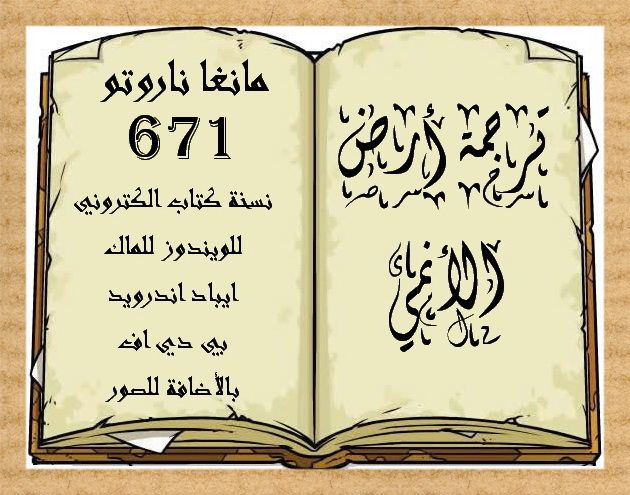 ترجمة أرض
الأنمي
مانغا ناروتو
671
نسخة كتاب الكتروني
للويندوز للماك
ايباد اندرويد
بي دي اف
بالأضافة للصور